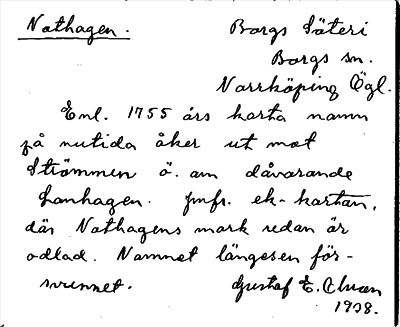 Nothagen. Borgs Säteri
Borgs sn.
Norrköping Ögl.
Enl. 1755 års karta namn
på nutida åker ut mot
Strömmen ö. om dåvarande
Lonhagen. Jmfr. ek-kartan,
där Nothagens mark redan är
odlad. Namnet längesen för-
svunnet. Gustaf E.
1938.